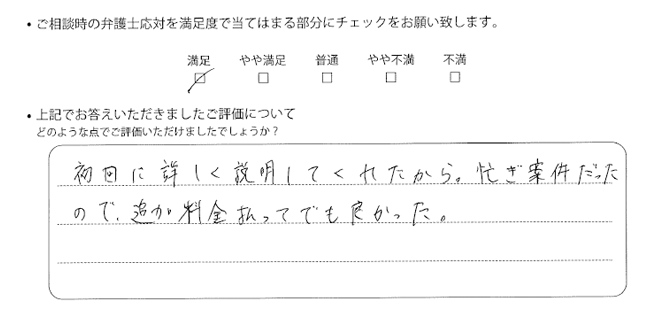 ・ご相談時の弁護士応対を満足度で当てはまる部分にチェックをお願い致します。
満足 やや満足 普通 やや不満 不満
・上記でお答えいただきましたご評価について
どのような点でご評価いただけましたでしょうか？
初回に詳しく説明してくれたから。忙ぎ案件だった
ので、追加料金払ってでも良かった。